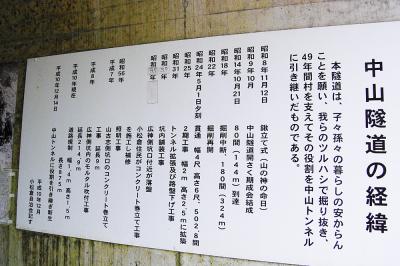 中山隧道の経緯
本隧道は、子々孫々の暮らしの安からん
ことを願い、我らのツルハシで掘り抜き、
49年間村を支えてその役割を中山トンネル
に引き継いだものである。
昭和8年11月12日 鍬立て式（山の神の命日）
昭和9年10月 中山隧道開さく期成会結成
昭和14年10月22日 80間（144m）到達
昭和18年 掘削中断、180間（324m）
昭和22年 掘削再開
昭和24年5月1日夕刻 貫通 幅4尺 高さ6尺、502.8間
昭和25年 2期工事 幅2m 高さ2.5mに拡築
昭和31年 トンネル拡張及び路盤下げ工事
坑内舗装工事
広神側坑口付近が落盤
小松倉住民がコンクリート巻立て工事
を施工し補修
昭和56年 照明工事
平成7年 山古志側坑口のコンクリート巻立て
工事 延長9.5m
平成8年 広神側坑内のモルタル吹付工事
延長214.9m
平成10年現在
平成10年12月14日 中山トンネルに役割を引き継ぎ新生
平成10年12月
小松倉自治会記す